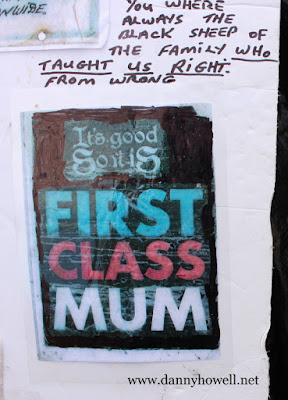 YOU WHERE
ALWAYS THE
BLACK SHEEP OF
THE FAMILY WHO
TAUGHT US RIGHT.
FROM WRONG
It's good
So it is
FIRST
CLASS
MUM
www.dannyhowell.net